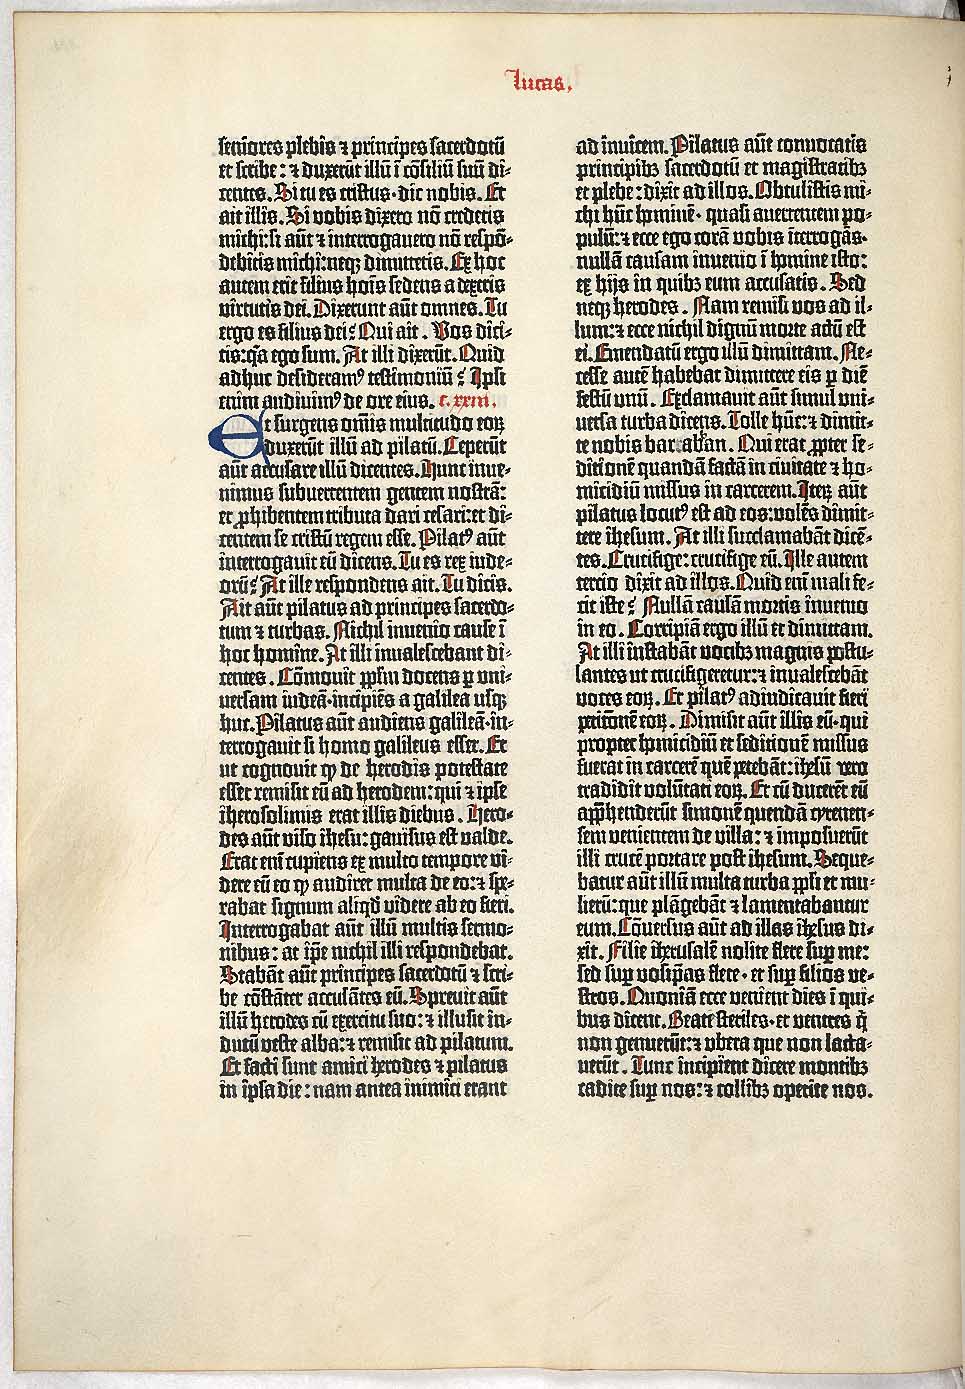 Lucas.
seniores plebis ⁊ principes sacerdotū
et scribe: ⁊ duxerūt illū ī cōsiliū suū di-
centes. Si tu es cristus · dic nobis. Et
ait illis. Si vobis dixero nō credetis
michi: si aūt ⁊ interrogavero nō respō-
debitis michi: neqꝫ dimittetis. Ex hoc
autem erit filius hoīs sedens a dextris
virtutis dei. Dixerunt aūt omnes. Tu
ergo es filius dei? Qui ait. Vos dici-
tis: q̄a ego sum. At illi dixerūt. Quid
adhuc desideramꝰ testimoniū? Ipsi
enim audivimꝰ de ore eius. c. xxiii.
Et surgens om̄is multitudo eoꝝ
duxerūt illū ad pilatū. Ceperūt
aūt accusare illū dicentes. Hunc inve-
nimus subvertentem gentem nostrā:
et ꝓhibentem tributa dari cesari: et di-
centem se cristū regem esse. Pilatꝰ aūt
interrogavit eū dicens. Tu es rex iude-
orū? At ille respondens ait. Tu dicis.
Ait aūt pilatus ad principes sacerdo-
tum ⁊ turbas. Nichil invenio cause ī
hoc homine. At illi invalescebant di-
centes. Cōmovit pp̄lm docens ꝑ uni-
versam iudeā · incipiēs a galilea usqꝫ
huc. Pilatus aūt audiens galileā · in-
terrogavit si homo galileus esset. Et
ut cognovit ꝙ de herodis potestate
esset remisit eū ad herodem: qui ⁊ ipse
iherosolimis erat illis diebus. Hero-
des aūt viso ihesu: gavisus est valde.
Erat enī cupiens ex multo tempore vi-
dere eū eo ꝙ audiret multa de eo: ⁊ spe-
rabat signum aliqd̄ videre ab eo fieri.
Interrogabat aūt illū multis sermo-
nibus: at ip̄e nichil illi respondebat.
Stabāt aūt principes sacerdotū ⁊ scri-
be cōstāter accusātes eū. Sprevit aūt
illū herodes cū exercitu suo: ⁊ illusit in-
dutū veste alba: ⁊ remisit ad pilatum.
Et facti sunt amici herodes ⁊ pilatus
in ipsa die: nam antea inimici erant
ad invicem. Pilatus aūt convocatis
principibꝫ sacerdotū et magistratibꝫ
et plebe: dixit ad illos. Obtulistis mi-
chi hūc hominē · quasi avertentem po-
pulū: ⁊ ecce ego corā vobis īterrogās ·
nullā causam invenio ī homine isto:
ex hijs in quibꝫ eum accusatis. Sed
neqꝫ herodes. Nam remisi vos ad il-
lum: ⁊ ecce nichil dignū morte actū est
ei. Emendatū ergo illū dimittam. Ne-
cesse autē habebat dimittere eis ꝑ diē
festū unū. Exclamavit aūt simul uni-
versa turba dicens. Tolle hūc: ⁊ dimit-
te nobis barabban. Qui erat ꝓpter se-
ditionē quandā factā in civitate ⁊ ho-
micidiū missus in carcerem. Iteꝝ aūt
pilatus locutꝰ est ad eos: volēs dimit-
tere ihesum. At illi succlamabāt dicē-
tes. Crucifige: crucifige eū. Ille autem
tercio dixit ad illos. Quid enī mali fe-
cit iste? Nullā causā mortis invenio
in eo. Corripiā ergo illū et dimittam.
At illi instabāt vocibꝫ magnis postu-
lantes ut crucifigeretur: ⁊ invalescebāt
voces eoꝝ. Et pilatꝰ adiudicavit fieri
petitionē eoꝝ. Dimisit aūt illis eū · qui
propter homicidiū et seditionē missus
fuerat in carcerē quē petebāt: ihesū vero
tradidit volūtati eoꝝ. Et cū ducerēt eū
app̄henderūt simonē quendā cyrenen-
sem venientem de villa: ⁊ imposuerūt
illi crucē portare post ihesum. Seque-
batur aūt illū multa turba pp̄li et mu-
lierū: que plāgebāt ⁊ lamentabantur
eum. Cōversus aūt ad illas ihesus di-
xit. Filie iherusalē nolite flere suꝑ me:
sed suꝑ vosip̄as flete · et suꝑ filios ve-
stros. Quoniā ecce venient dies ī qui-
bus dicent. Beate steriles · et ventres q̄
non genuerūt: ⁊ ubera que non lacta-
verūt. Tunc incipient dicere montibꝫ
cadite suꝑ nos: ⁊ collibꝫ operite nos.